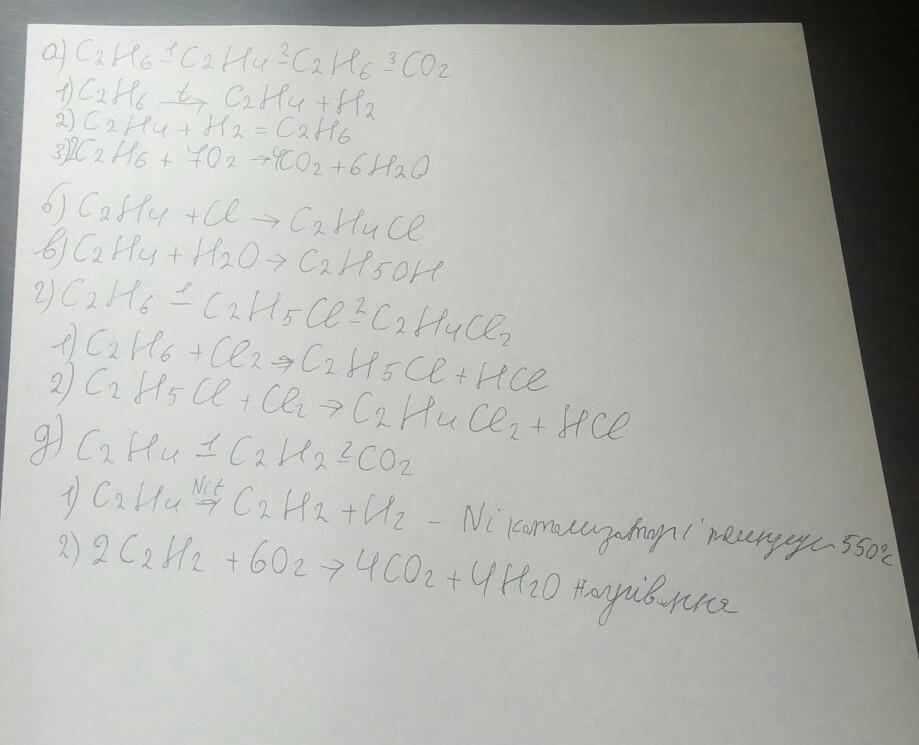 а) C2H6 1– C2H4 2– C2H6 3– CO2
1) C2H6 t→ C2H4 + H2
2) C2H4 + H2 = C2H6
3) 2C2H6 + 7O2 → 4CO2 + 6H2O
б) C2H4 + Cl → C2H4Cl
в) C2H4 + H2O → C2H5OH
г) C2H6 1– C2H5Cl 2– C2H4Cl2
1) C2H6 + Cl2 → C2H5Cl + HCl
2) C2H5Cl + Cl2 → C2H4Cl2 + HCl
д) C2H4 1– C2H2 2– CO2
1) C2H4 Ni t⇒ C2H2 + H2 – Ni каталізаторі 550°C
2) 2C2H2 + 6O2 → 4CO2 + 4H2O нагрівання